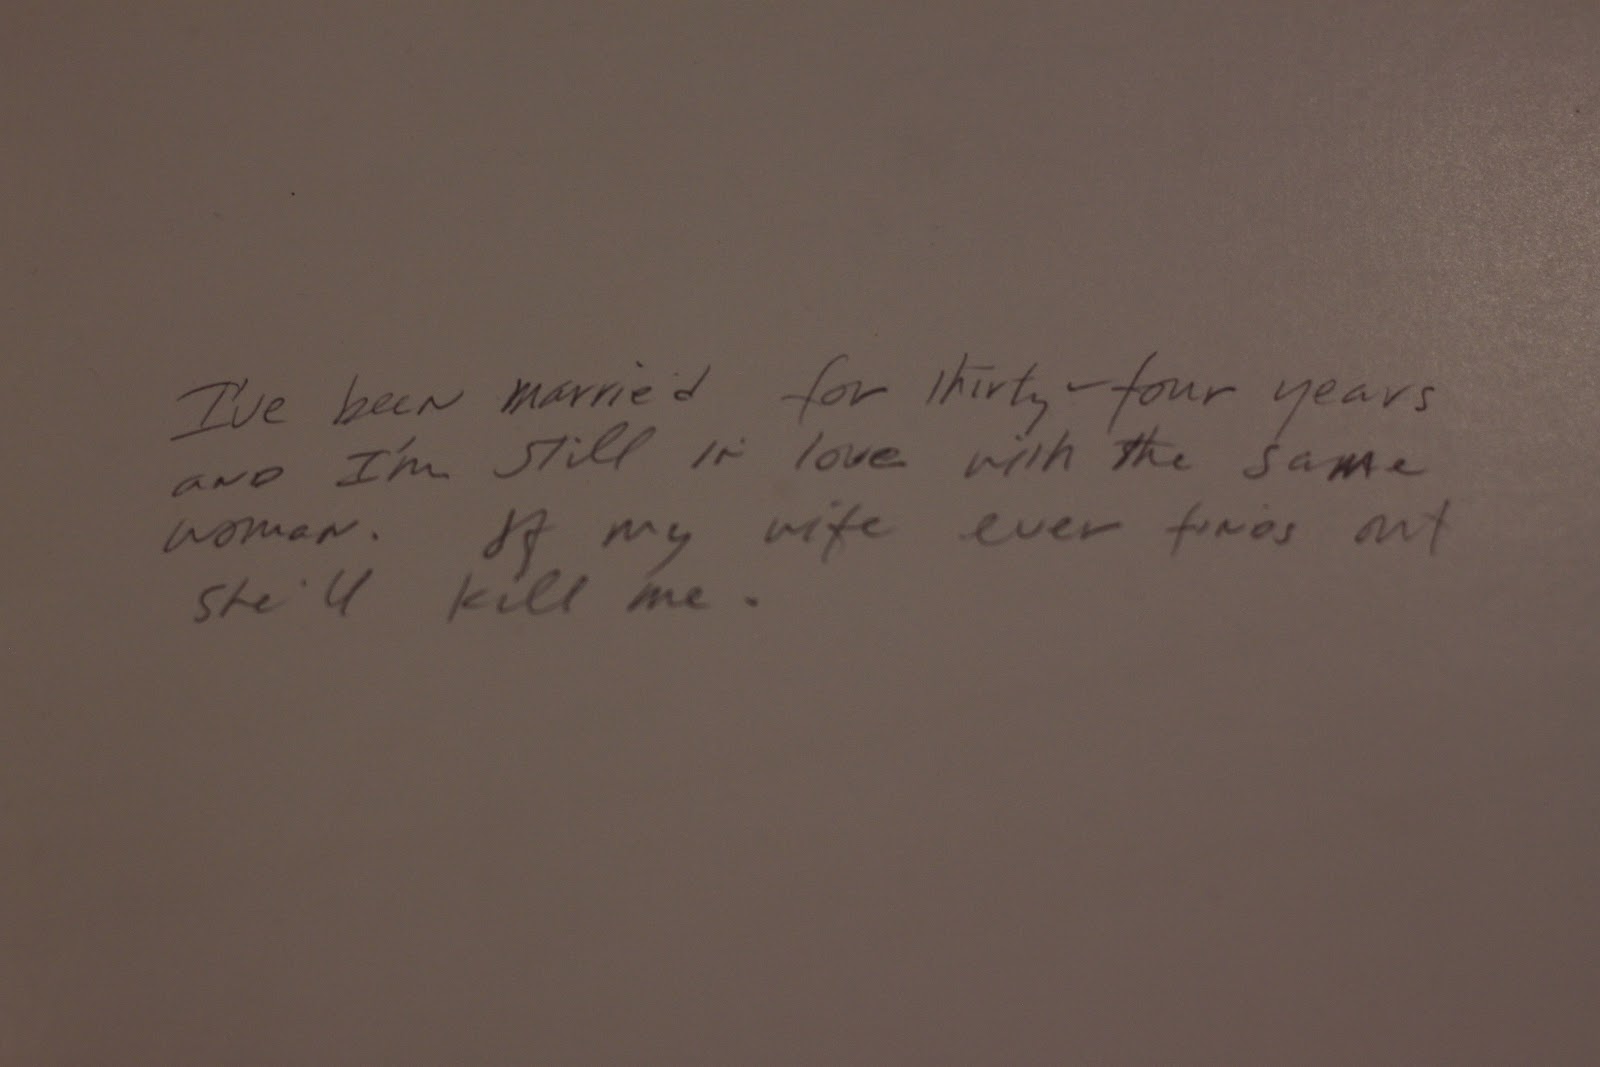 I've been married for thirty-four years
and I'm still in love with the same
woman. If my wife ever finds out
she'll kill me.